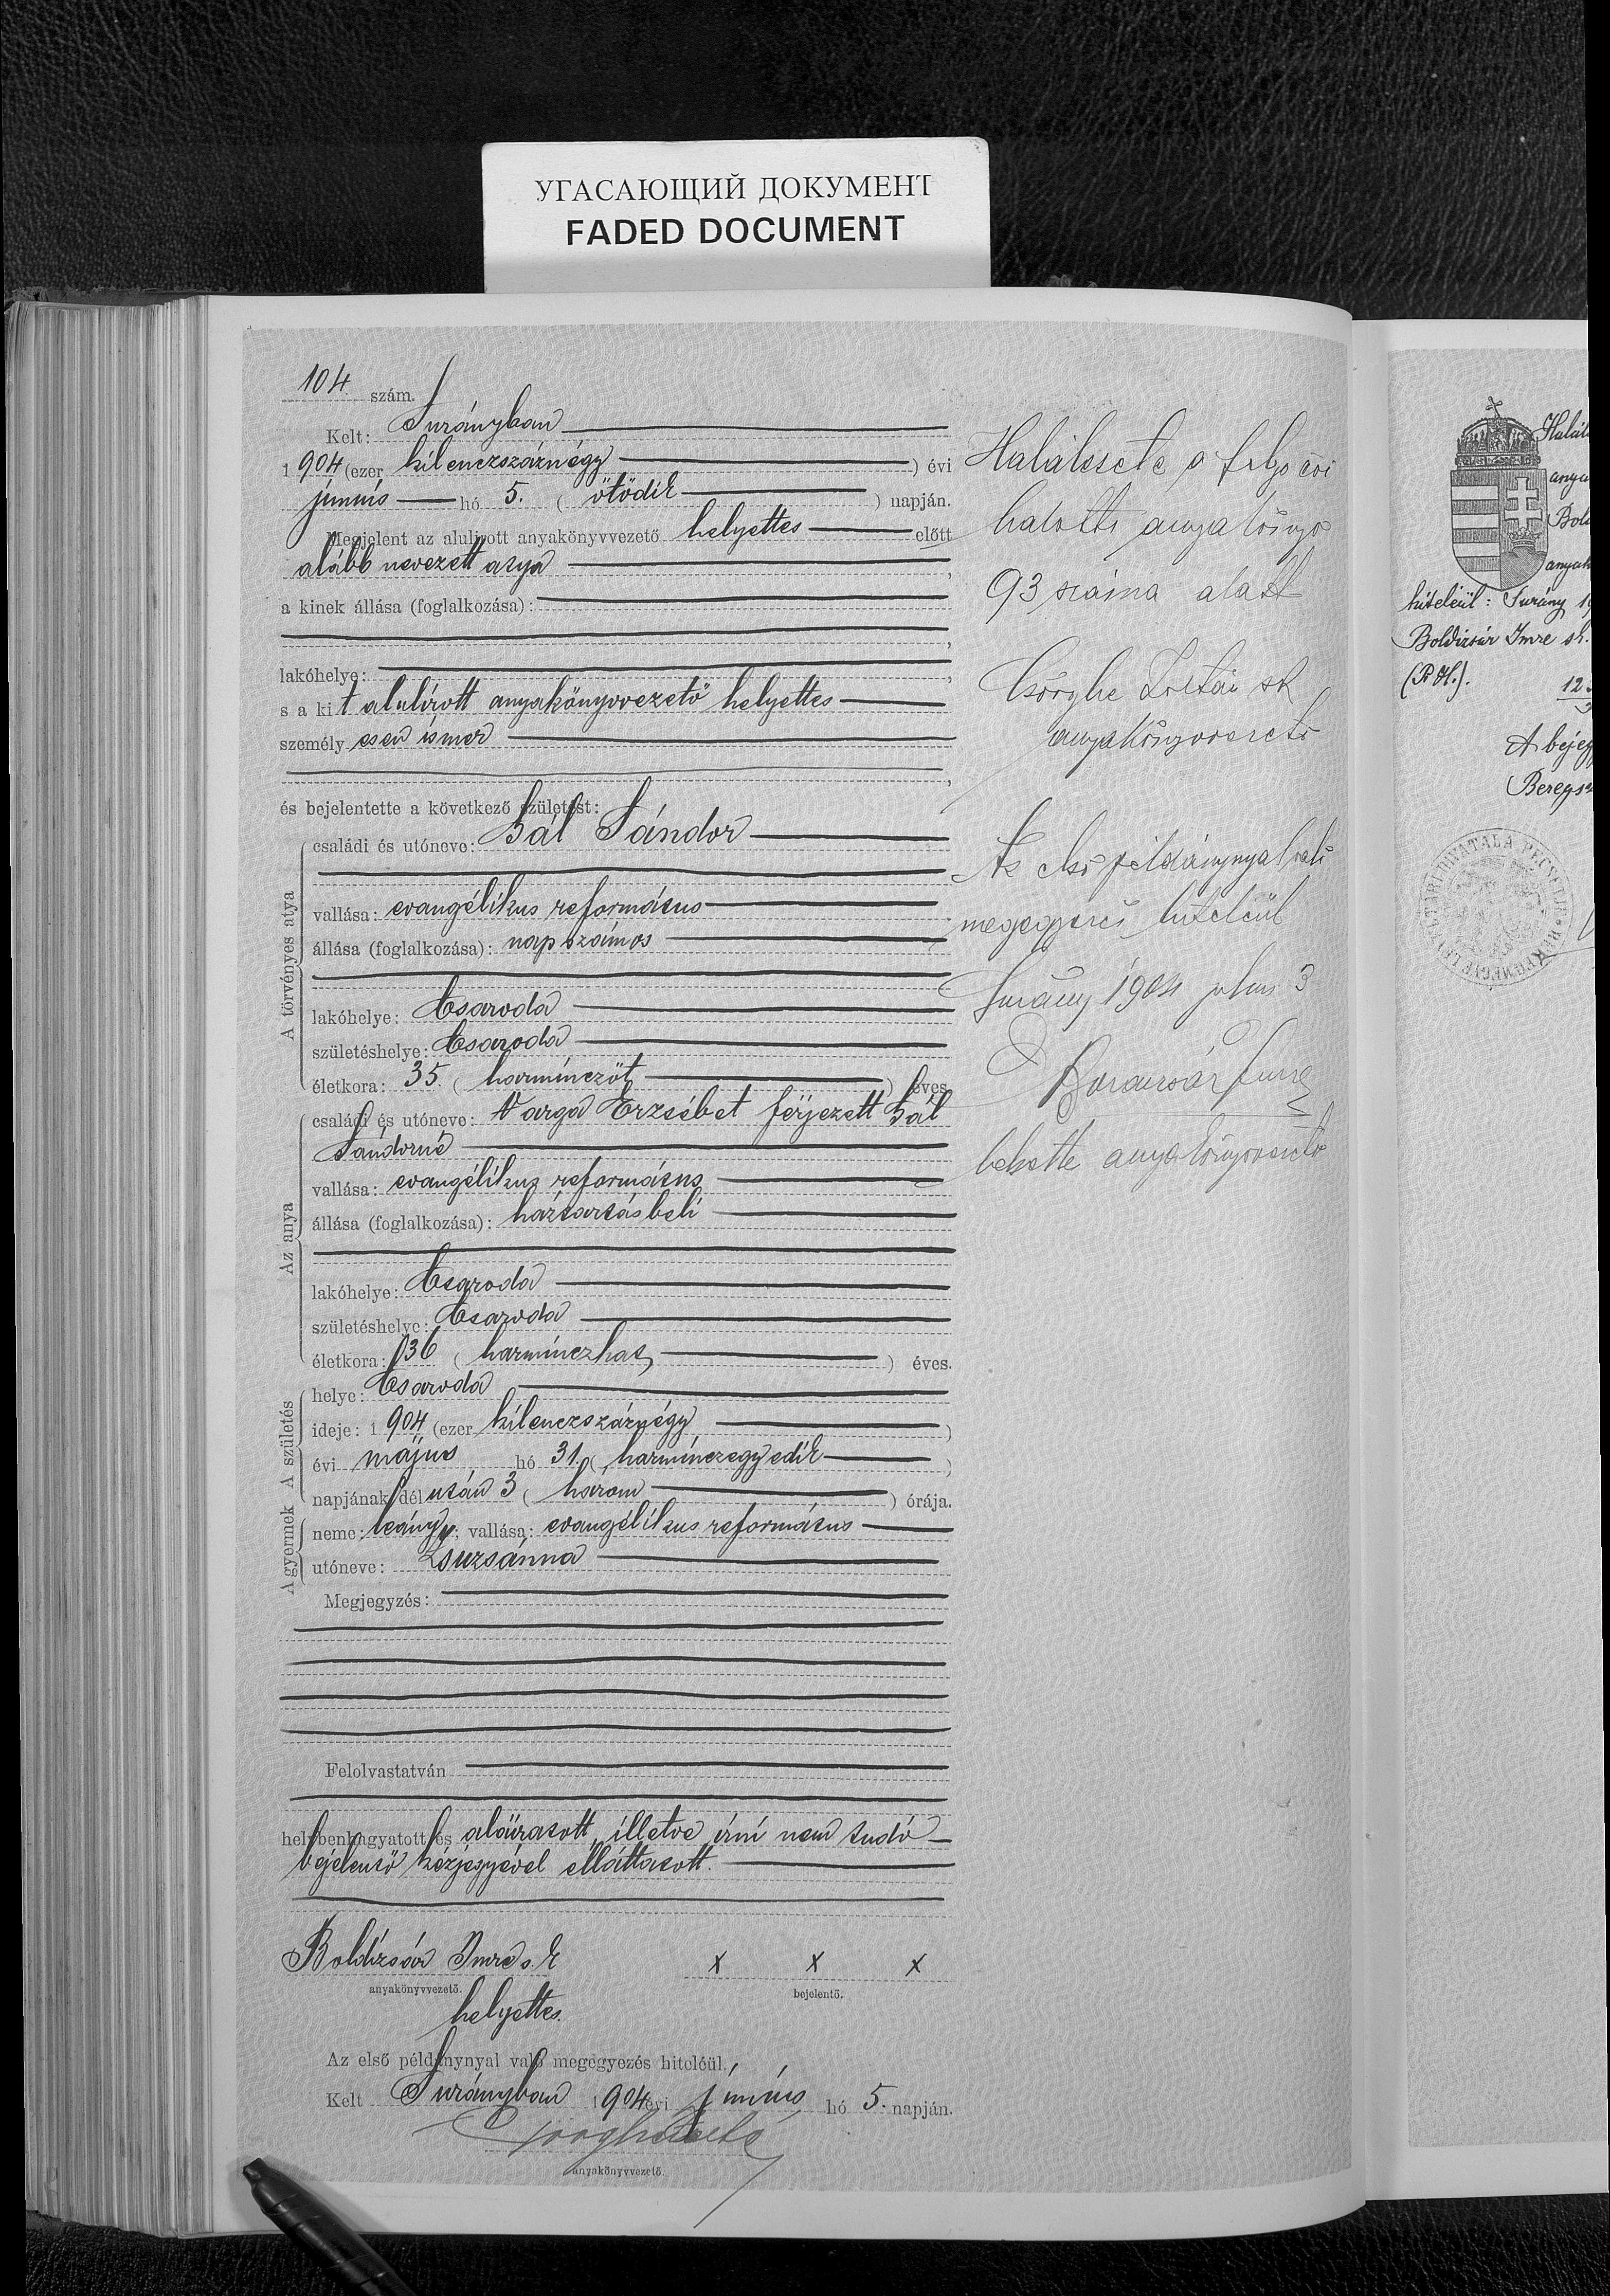 УГАСАЮЩИЙ ДОКУМЕНТ
FADED DOCUMENT
104 szám.
Kelt: Surányban
1904 (ezer kilenczszáznégy ) évi
június hó 5. ( ötödik ) napján.
Megjelent az alulirott anyakönyvvezető helyettes előtt
alább nevezett atya ,
a kinek állása (foglalkozása):
,
lakóhelye: ,
s a kit alulírott anyakönyvvezető helyettes
személyesen ismer
,
és bejelentette a következő születést:
A törvényes atya
családi és utóneve: Bál Sándor
vallása: evangélikus református
állása (foglalkozása): napszámos
lakóhelye: Csaroda
születéshelye: Csaroda
életkora: 35. ( harminczöt ) éves.
Az anya
családi és utóneve: Varga Erzsébet férjezett Bál
Sándorné
vallása: evangélikus református
állása (foglalkozása): háztartásbeli
lakóhelye: Csaroda
születéshelye: Csaroda
életkora: 36 ( harminczhat ) éves.
A születés
helye: Csaroda
ideje: 1904 (ezer kilenczszáznégy )
évi május hó 31. ( harminczegyedik )
napjának délután 3 ( három ) órája.
A gyermek
neme: leány; vallása: evangélikus református
utóneve: Zsuzsánna
Megjegyzés:
Felolvastatván
helybenhagyatott és aláiratott, illetve írni nem tudó
bejelentő kézjegyével elláttatott.
Boldizsár Imre s. k x x x
anyakönyvvezető. bejelentő.
helyettes.
Az első példánynyal való megegyezés hiteléül.
Kelt Surányban 1904 évi június hó 5. napján.
anyakönyvvezető.
Halálesete a folyó évi
halotti anyakönyv
93 száma alatt
Csörghe Zoltán sk
anyakönyvvezető
Az első példánynyal való
megegyezés hiteléül
Surány 1904 julius 3
Boldizsár Imre
helyettes anyakönyvvezető
Halál
anya
Bol
anyak
hiteléül: Surány 19
Boldizsár Imre sk.
(P. H.).
A bejegy
Beregsz